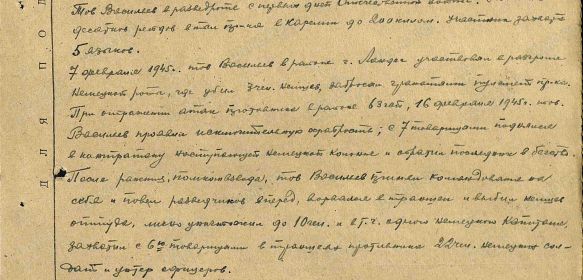 Тов Васильев в разведроте с первых дней Отечественной войны.
десятков рейдов в тыл врага в Карелии до 200 килом. Участник захвата
5 языков.
7 февраля 1945г. тов Васильев в районе г. Ландек участвовал в разгроме
немецкой роты, где убил 3 чел. немцев, забросал гранатами пулемет пр-ка.
При отражении атаки противника в районе 16 февраля 1945г. тов.
Васильев проявил исключительную храбрость; с 7 товарищами поднялся
в контратаку наступающей немецкой колонне и обратил последнюю в бегство.
После ранения, помкомвзвода, тов Васильев принял командование на
себя и повел разведчиков вперед, ворвался в траншеи и выбил немцев
оттуда, лично уничтожил до 10 чел. и в т.ч. одного немецкого капитана,
захватил с 6ю товарищами в траншеях противника 22 чел. немецких сол-
дат и унтер офицеров.
ДЛЯ ПОД